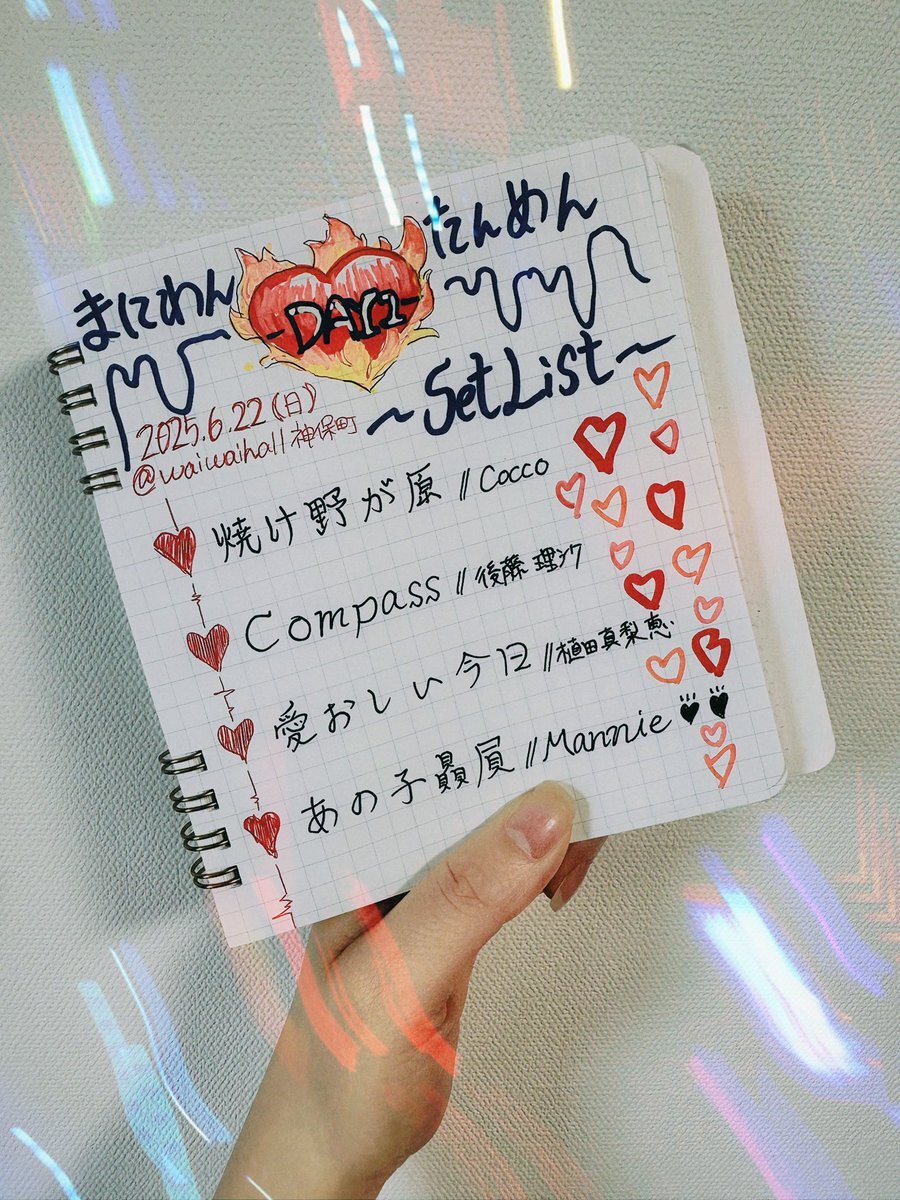 まにわん
たんめん
-DAY1-
~SetList~
2025.6.22(日)
@waiwaihall神保町
焼け野が原//Cocco
Compass//後藤理沙
愛おしい今日//植田真梨恵
あの子贔屓//Mannie